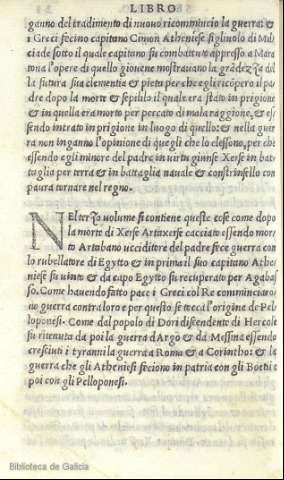 LIBRO
ganno del tradimento di nuovo ricominciò la guerra: &
i Greci fecino capitano Cimon Atheniese figliuolo di Mil
ciade sotto il quale capitano fu combattuto appresso a Mara
tona l'opere di quello giovene mostravano la grādez̄a dal
la futura sua clementia & pietà per che egli ricoperò il pa
dre dopo la morte & sepelilo il quale era stato in prigione
& in quella era morto per peccato di mala raggione, & es
sendo intrato in prigione in luogo di quello: & nella guer
ra non inganno l'opinione di quegli che lo elessono, per che
essendo egli minore del padre in virtu giunse Xerse in bat
taglia per terra & in battaglia navale & constrinsello con
paura tornare nel regno.
NEl terzo volume si contiene queste cose come dopo
la morte di Xerse Artaxerse cacciato essendo mor
to Artabano ucciditore del padre fece guerra con
lo rubellatore di Egytto & in prima il suo capitano Athe
niese fu vinto & da capo Egytto fu recuperato per Agabas
so. Come havendo fatto pace i Greci col Re cominciaro
no guerra contra loro e per questo se tocca l'origine de Pel
loponesi. Come dal popolo di Dori discendente di Hercole
fu ritenuta da poi la guerra d'Argo & da Messina essendo
cresciuti i tyranni la guerra a Roma & a Corintho: & la
guerra che gli Atheniesi feciono in patria con gli Boetii e
poi con gli Pelloponesi.
Biblioteca de Galicia